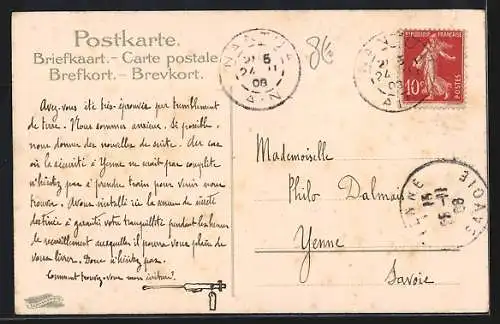 Postkarte.
Briefkaart.- Carte postale
Brefkort.- Brevkort.
NANTUA
24
08
AIN
86
NANTUA
24
08
AIN
RÉPUBLIQUE FRANÇAISE
10c
POSTES
Avez-vous été très éprouvés par tremblement
de terre. Nous sommes anxieux. Si possible,
nous donner des nouvelles de suite. Au cas
où la sécurité à Yenne ne serait pas complète
n'hésitez pas à prendre train pour venir nous
trouver. Avons installé ici la
destinée à garantir votre tranquillité pendant les heures
de recueillement auxquelles il pourra vous plaire de
vous livrer. Donc n'hésitez pas.
Comment trouvez-vous mon écriture?
Mademoiselle
Philo Dalmais
Yenne
Savoie
YENNE
SAVOIE
08